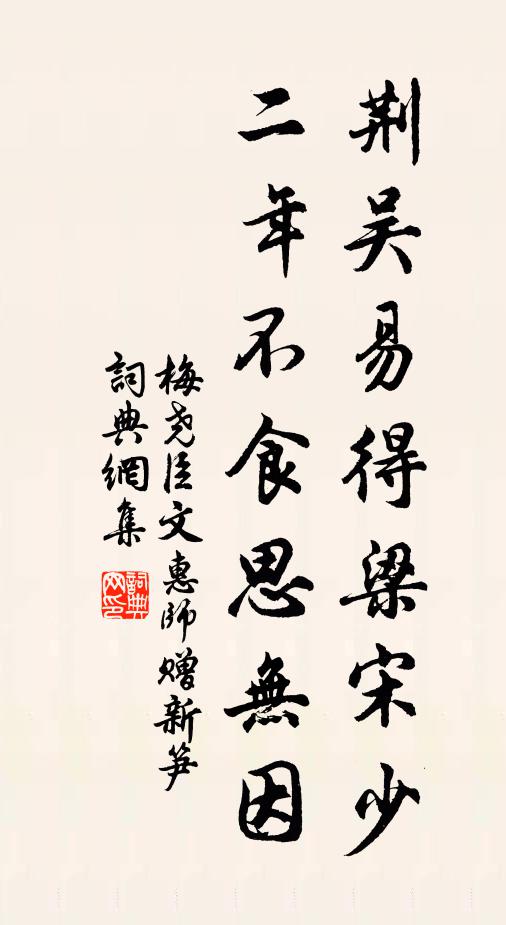 荆吴易得梁宋少
二年不食思無因
梅尧臣文惠師赠新笋
詞典網集
詞典网印